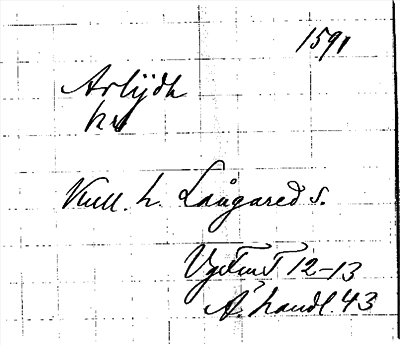 1591
Arlijdh
hr
Kull. h. Långared s.
Vgl 12-13
Ä. handl. 43